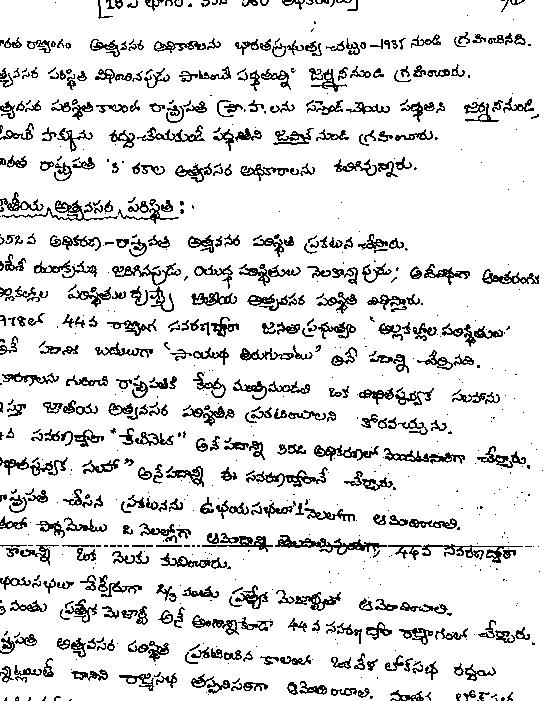 [18వ భాగం. 352 నుండి 360 అధికరణలు]
భారత రాజ్యాంగం అత్యవసర అధికారాలను భారతప్రభుత్వ చట్టం-1935 నుండి గ్రహించినది.
అత్యవసర పరిస్థితి విధించినపుడు పాటించే పద్ధతులన్ని జర్మనీ నుండి గ్రహించారు.
అత్యవసర పరిస్థితి కాలంలో రాష్ట్రపతి ప్రా.హ.లను సస్పెండ్ చేయు పద్ధతిని జర్మనీ నుండి,
జీవించే హక్కును రద్దు చేయకుండే పద్ధతిని జపాన్ నుండి గ్రహించారు.
భారత రాష్ట్రపతి '3' రకాల అత్యవసర అధికారాలను కలిగివున్నారు.
జాతీయ అత్యవసర పరిస్థితి :
352వ అధికరణ-రాష్ట్రపతి అత్యవసర పరిస్థితి ప్రకటన చేస్తారు.
విదేశీ దండయాత్ర జరిగినప్పుడు, యుద్ధ పరిస్థితులు నెలకొన్నప్పుడు; అదేవిధంగా ఆంతరంగిక
అల్లకల్లోల పరిస్థితుల దృష్ట్యా జాతీయ అత్యవసర పరిస్థితి విధిస్తారు.
1978లో 44వ రాజ్యాంగ సవరణద్వారా జనతాప్రభుత్వం "అల్లకల్లోల పరిస్థితులు"
అనే పదానికి బదులుగా "సాయుధ తిరుగుబాటు" అనే పదాన్ని చేర్చినది.
కారణాలను గురించి రాష్ట్రపతికి కేంద్ర మంత్రిమండలి ఒక లిఖితపూర్వక సలహాను
ఇస్తూ జాతీయ అత్యవసర పరిస్థితిని ప్రకటించాలని కోరవచ్చును.
44వ సవరణద్వారా "కేబినెట్" అనే పదాన్ని 352 అధికరణలో మొదటిసారిగా చేర్చారు.
"లిఖితపూర్వక సలహా" అనే పదాన్ని ఈ సవరణద్వారానే చేర్చారు.
రాష్ట్రపతి చేసిన ప్రకటనను ఉభయసభలు 1 నెలలోగా ఆమోదించాలి.
పార్లమెంటు 2 నెలల్లోగా ఆమోదాన్ని తెలపాల్సివుండగా, 44వ సవరణద్వారా
కాలాన్ని ఒక నెలకు కుదించారు.
ఉభయసభలు వేర్వేరుగా 2/3 వంతు ప్రత్యేక మెజార్టీతో ఆమోదించాలి.
2/3 వంతు ప్రత్యేక మెజార్టీ అనే అంశాన్నికూడా 44వ సవరణ ద్వారా రాజ్యాంగంలో చేర్చారు.
రాష్ట్రపతి అత్యవసర పరిస్థితి ప్రకటించిన కాలంలో ఒకవేళ లోక్‌సభ రద్దయి
ఉన్నట్లయితే దానిని రాజ్యసభ తప్పనిసరిగా ఆమోదించాలి. నూతన లోక్‌సభ